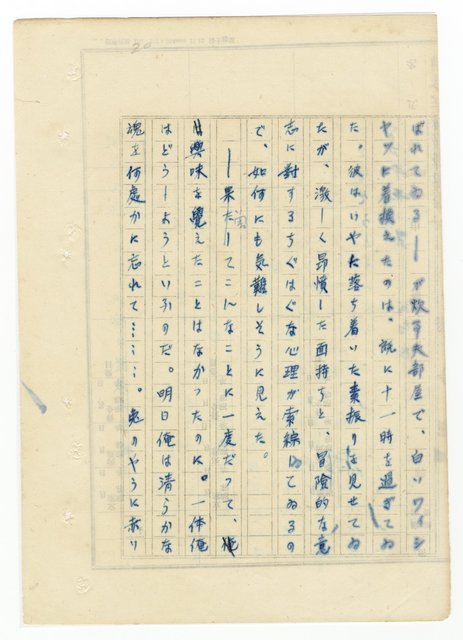 20
ばれてゐる――が炊事夫部屋で、白いワイシ
ヤツに着換えたのは、既に十一時を過ぎてゐ
た。彼はいやに落ち着いた素振りは見せてゐ
たが、激しく昂憤した面持ちと、冒險的な意
志に對するちぐはぐな心理が索線してゐるの
で、如何にも気難しそうに見えた。
――果たしてこんなことに一度だって、俺
は興味を覺えたことはなかったのに。一体俺
はどうしようといふのだ。明日俺は清らかな
魂を何處かに忘れて……。鬼のやうに赤い